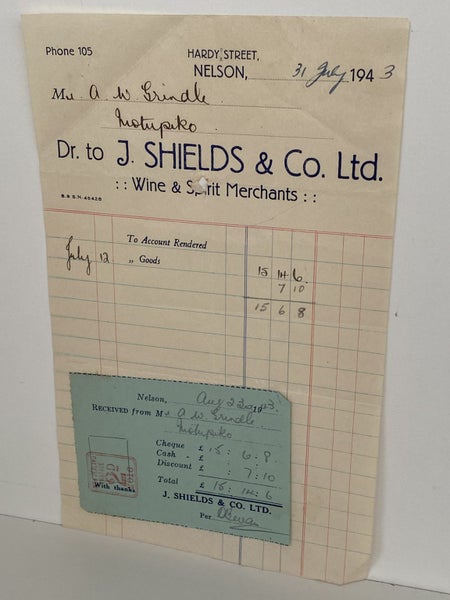 Phone 105
HARDY STREET,
NELSON, 31 July 1943
Mr A. W. Grindle
Motupiko
Dr. to J. SHIELDS & Co. Ltd.
:: Wine & Spirit Merchants ::
To Account Rendered
July 12 „ Goods 15 14 6
7 10
15 6 8
Nelson, Aug 23rd 1943.
RECEIVED from Mr A. W. Grindle
Motupiko
Cheque £ 15 : 6 : 8
Cash - £
Discount £ : 7 : 10
Total £ 15 : 14 : 6
With thanks
J. SHIELDS & CO. LTD.
Per